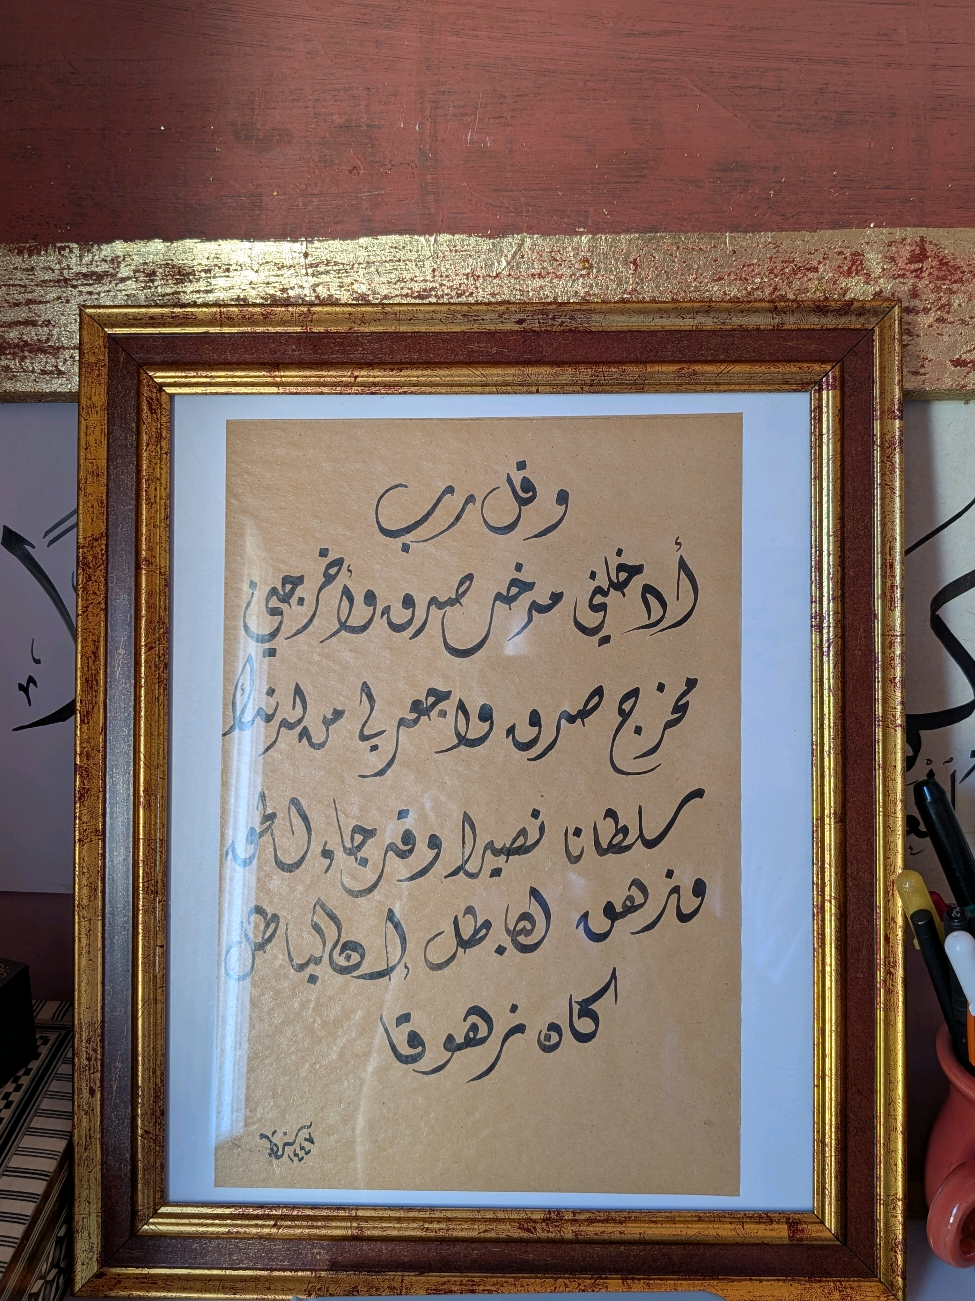 وقل رب
أدخلني مدخل صدق وأخرجني
مخرج صدق واجعل لي من لدنك
سلطانا نصيرا وقل جاء الحق
وزهق الباطل إن الباطل
كان زهوقا
١٤٤٧